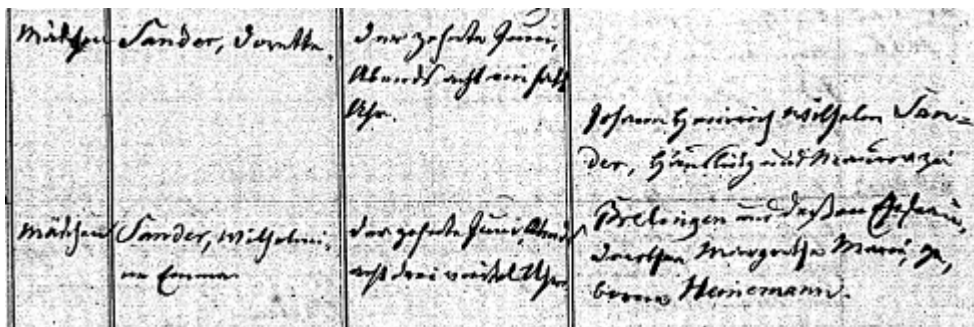 Mädchen
Sander, Dorette
Der zehnte Juni,
Abends acht ein halb
Uhr.
Johann Heinrich Wilhelm San=
der, Häusling und Maurer zu
Brelingen und dessen Ehefrau,
Dorothee Margrethe Marie, ge,
borne Heinemann.
Mädchen
Sander, Wilhelmi-
ne Emma
Der zehnte Juni, Abends
acht drei viertel Uhr.